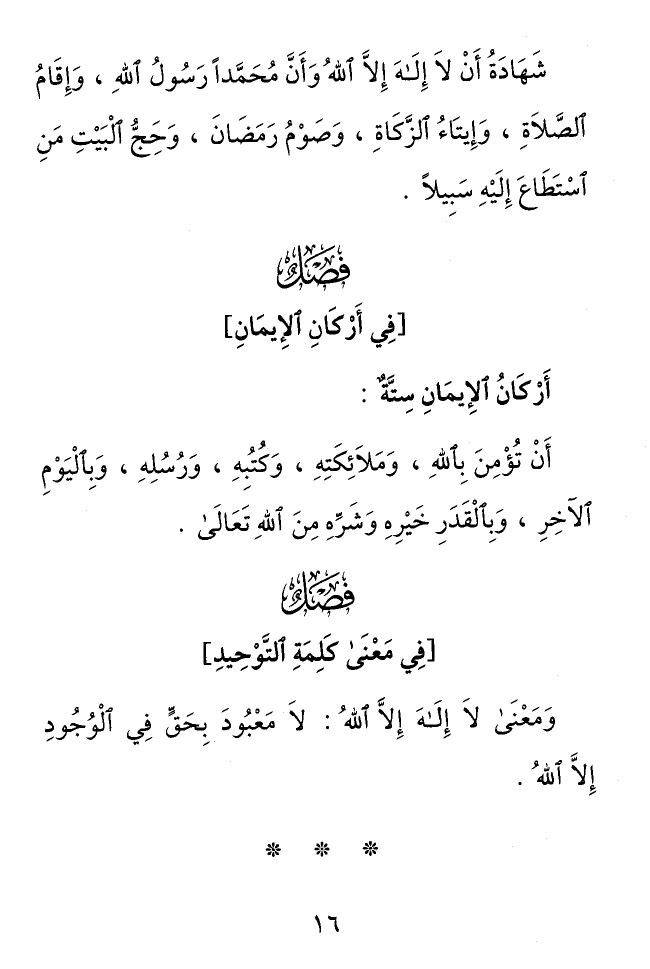 شَهَادَةُ أَنْ لاَ إِلَـٰهَ إِلاَّ ٱللهُ وَأَنَّ مُحَمَّداً رَسُولُ ٱللهِ ، وَإِقَامُ
ٱلصَّلاَةِ ، وَإِيتَاءُ ٱلزَّكَاةِ ، وَصَوْمُ رَمَضَانَ ، وَحَجُّ ٱلْبَيْتِ مَنِ
ٱسْتَطَاعَ إِلَيْهِ سَبِيلاً .
فَصْلٌ
[فِي أَرْكَانِ ٱلإِيمَانِ]
أَرْكَانُ ٱلإِيمَانِ سِتَّةٌ :
أَنْ تُؤْمِنَ بِٱللهِ ، وَمَلاَئِكَتِهِ ، وَكُتُبِهِ ، وَرُسُلِهِ ، وَبِٱلْيَوْمِ
ٱلآخِرِ ، وَبِٱلْقَدَرِ خَيْرِهِ وَشَرِّهِ مِنَ ٱللهِ تَعَالَىٰ .
فَصْلٌ
[فِي مَعْنَىٰ كَلِمَةِ ٱلتَّوْحِيدِ]
وَمَعْنَىٰ لاَ إِلَـٰهَ إِلاَّ ٱللهُ : لاَ مَعْبُودَ بِحَقٍّ فِي ٱلْوُجُودِ
إِلاَّ ٱللهُ .
* * *
١٦